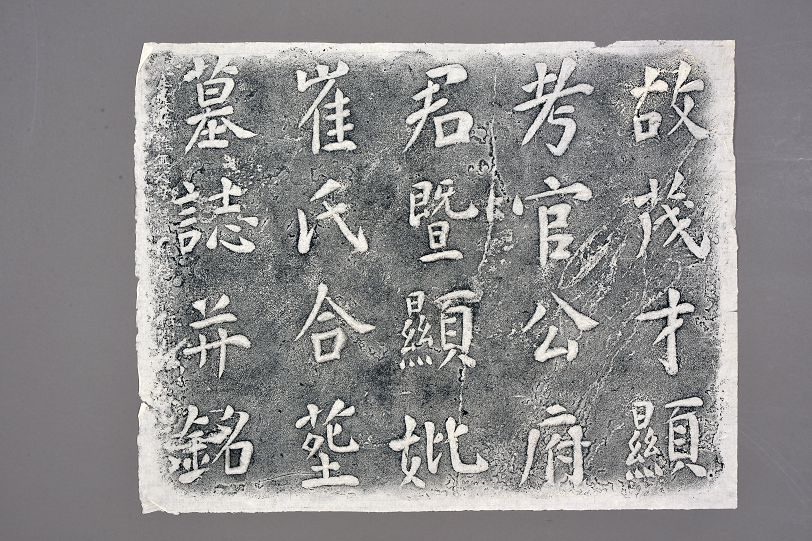 故茂才顯
考官公府
君暨顯妣
崔氏合塟
墓誌并銘